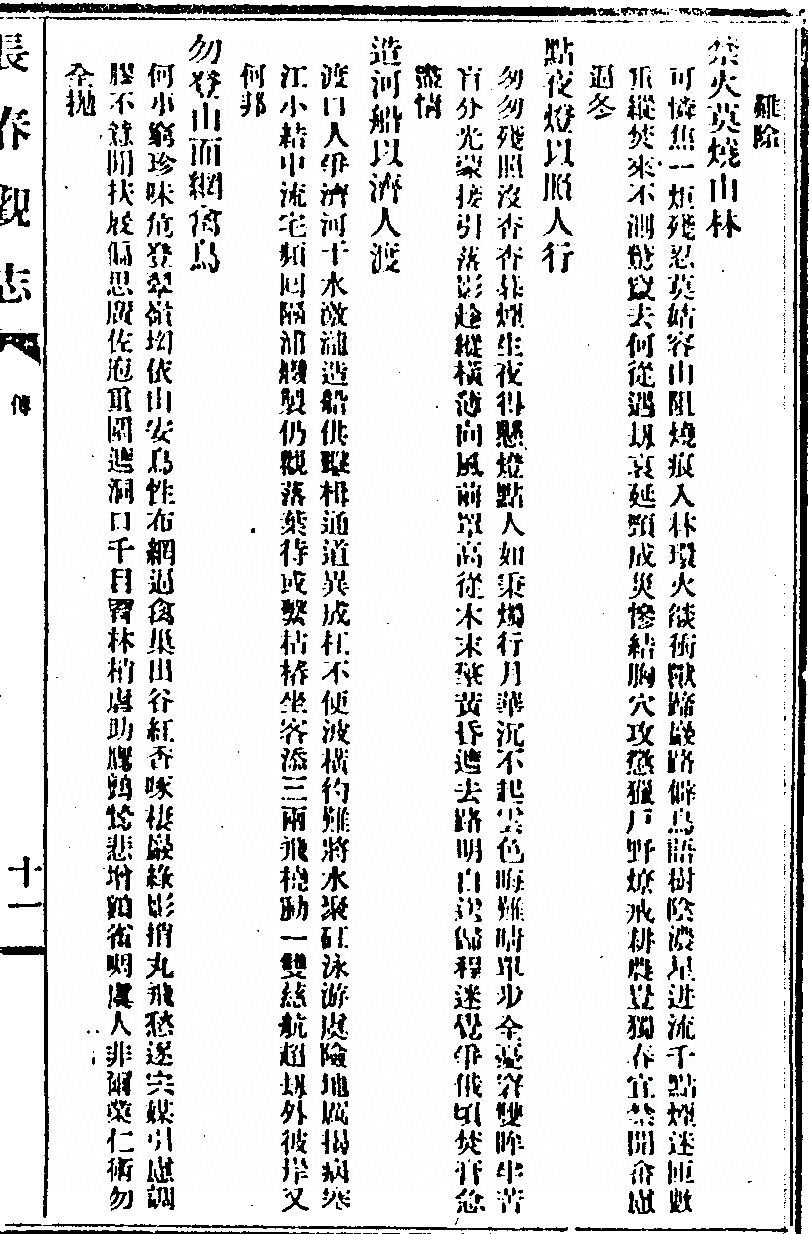 難除
禁火莫燒山林
可憐焦一炬殘忍莫姑容山阻燒痕入林環火燄衝獸蹄巖路僻鳥語樹陰濃星迸流千點煙迷匝數
重縱焚來不測驚竄去何從遇劫哀延頸成災慘結胸穴攻懲獵戶野燎戒耕農豈獨春宜禁開畬慮
過冬
點夜燈以照人行
匆匆殘照沒杳杳暮煙生夜得懸燈點人如秉燭行月華沉不起雲色晦難晴單步全憂窘雙眸坐苦
盲分光蒙接引落影趁縱橫薄向風前罩高從木末擎黃昏遮去路明白送歸程迷覺爭俄頃焚膏念
濟情
造河船以濟人渡
渡口人爭濟河干水激瀧造船供擊楫通道異成杠不便波橫彴難將水聚矼泳游虞險地厲揭病寒
江小結中流宅頻回隔浦艭製仍觀落葉待或繫枯樁坐客添三兩飛橈動一雙慈航超劫外彼岸又
何邦
勿登山而網禽鳥
何事窮珍味危登翠嶺坳依山安鳥性布網過禽巢出谷紅香啄棲巖綠影捎丸飛愁逐宍媒引慮調
膠不錄開扶展偏思廣佐庖重圍遮洞口千目罥林梢虐助鷹鸇騖悲增鸛雀啁虞人非爾業仁術勿
全拋
長春觀志
傳
十一